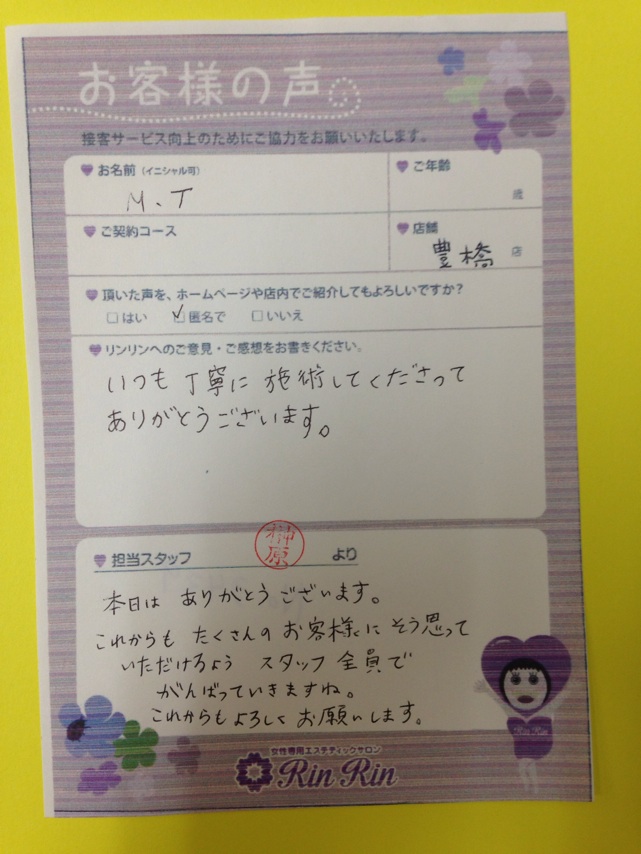 お客様の声
接客サービス向上のためにご協力をお願いいたします。
お名前（イニシャル可）
M、T
ご年齢
歳
ご契約コース
店舗
豊橋 店
頂いた声を、ホームページや店内でご紹介してもよろしいですか？
□はい ☑匿名で □いいえ
リンリンへのご意見・ご感想をお書きください。
いつも 丁寧に 施術してくださって
ありがとうございます。
担当スタッフ 榊原 より
本日は ありがとう ございます。
これからも たくさんの お客様に そう思って
いただけるよう スタッフ 全員で
がんばっていきますね。
これからもよろしく お願いします。
Rin Rin
女性専用エステティックサロン
Rin Rin